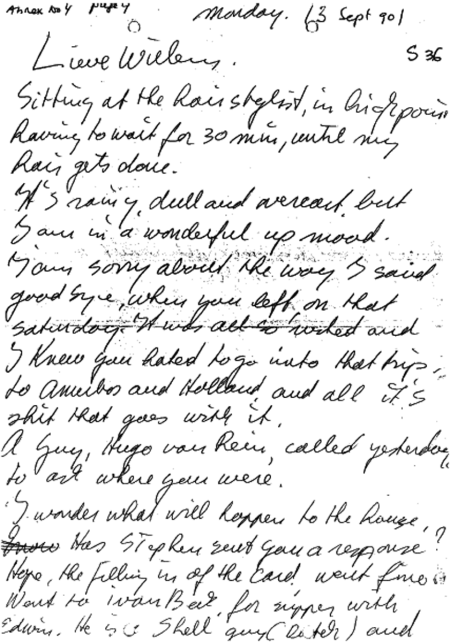 Annex No 4 page 4
Monday. 13 Sept 901
S 36
Lieve Willem.
Sitting at the hairstylist, in
having to wait for 30 min, until my
hair gets done.
It's rainy, dull and overcast, but
I am in a wonderful up mood.
I am sorry about the way I said
goodbye, when you left, on that
saturday. It was all so rushed and
I knew you hated to go into that trip,
to and Holland, and all it's
shit that goes with it.
A guy, Hugo van Rein, called yesterday
to ask where you were.
I wonder what will happen to the house,
Has Stephen sent you a response?
Hope, the filling in of the Card, went fine.
Went to for supper with
Edwin. He is a Shell guy (Dutch) and